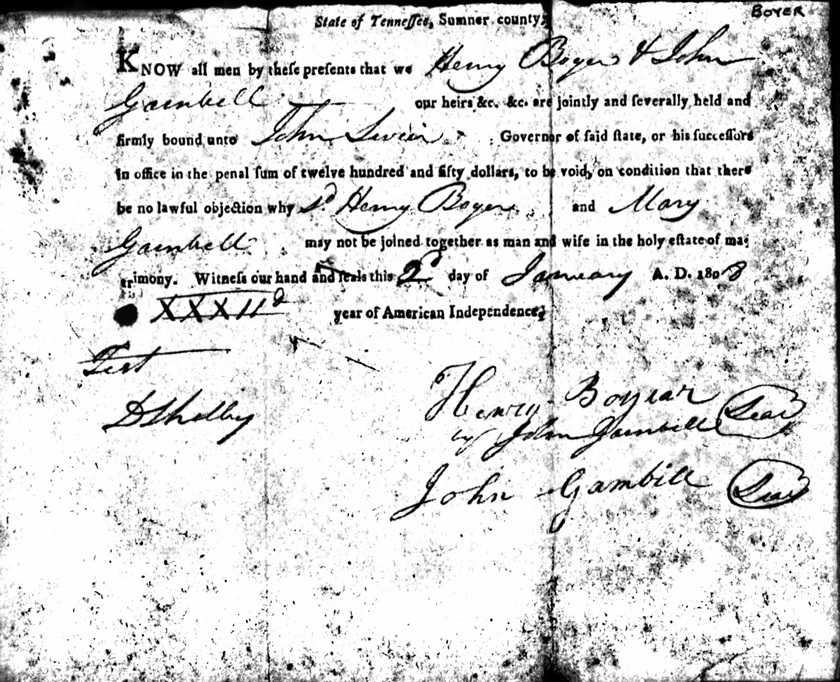 BOYER
State of Tenneſſee, Sumner county;
KNOW all men by theſe preſents that we Henry Boyer & John
Gambell our heirs &c. &c. are jointly and ſeverally held and
firmly bound unto John Sevier Governor of ſaid ſtate, or his ſucceſſors
in office in the penal ſum of twelve hundred and fifty dollars, to be void, on condition that there
be no lawful objection why sd. Henry Boyer and Mary
Gambell may not be joined together as man and wife in the holy eſtate of ma-
trimony. Witneſs our hand and ſeals this 2d day of January A. D. 1808
XXXIId year of American Independence.
Test
Henry Boyear Seal
DShelby
by John Gambill
John Gambill Seal